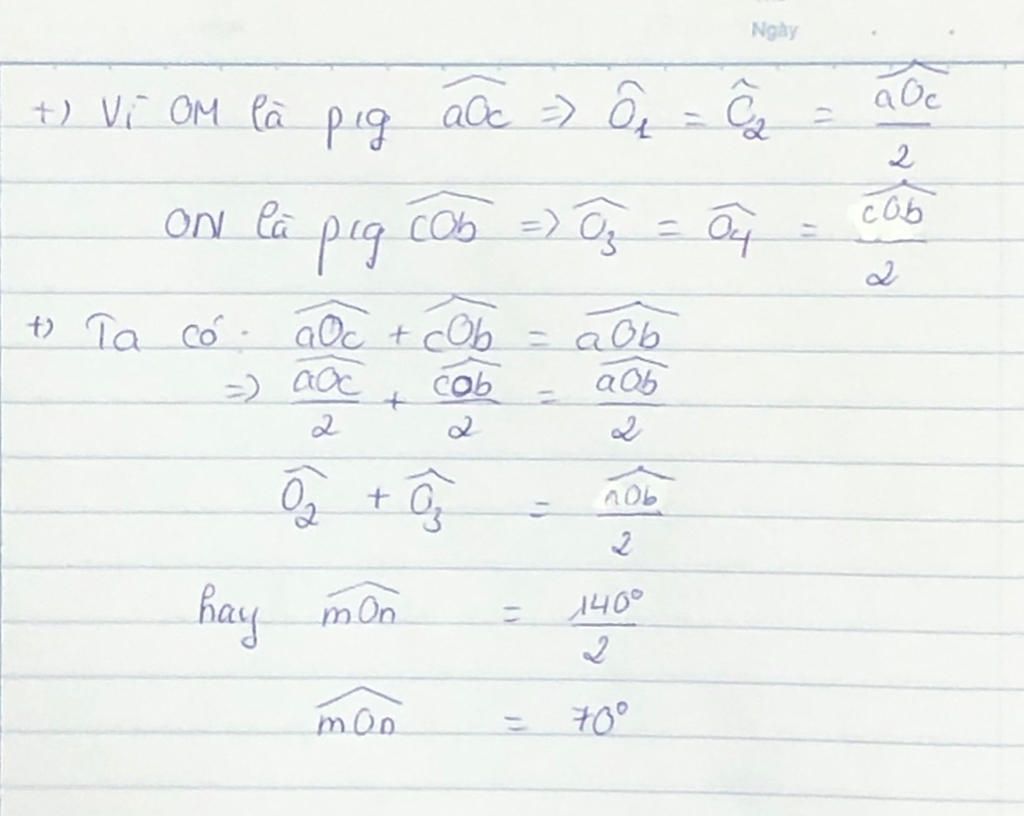 Ngày
+) Vì OM là pıg \widehat{aOc} => \widehat{O}_1 = \widehat{C}_2 = \frac{\widehat{aOc}}{2}
ON là pıg \widehat{cOb} => \widehat{O_3} = \widehat{O_4} = \frac{\widehat{cOb}}{2}
+) Ta có: \widehat{aOc} + \widehat{cOb} = \widehat{aOb}
=> \frac{\widehat{aOc}}{2} + \frac{\widehat{cOb}}{2} = \frac{\widehat{aOb}}{2}
\widehat{O_2} + \widehat{O_3} = \frac{\widehat{aOb}}{2}
hay \widehat{mOn} = \frac{140°}{2}
\widehat{mOn} = 70°